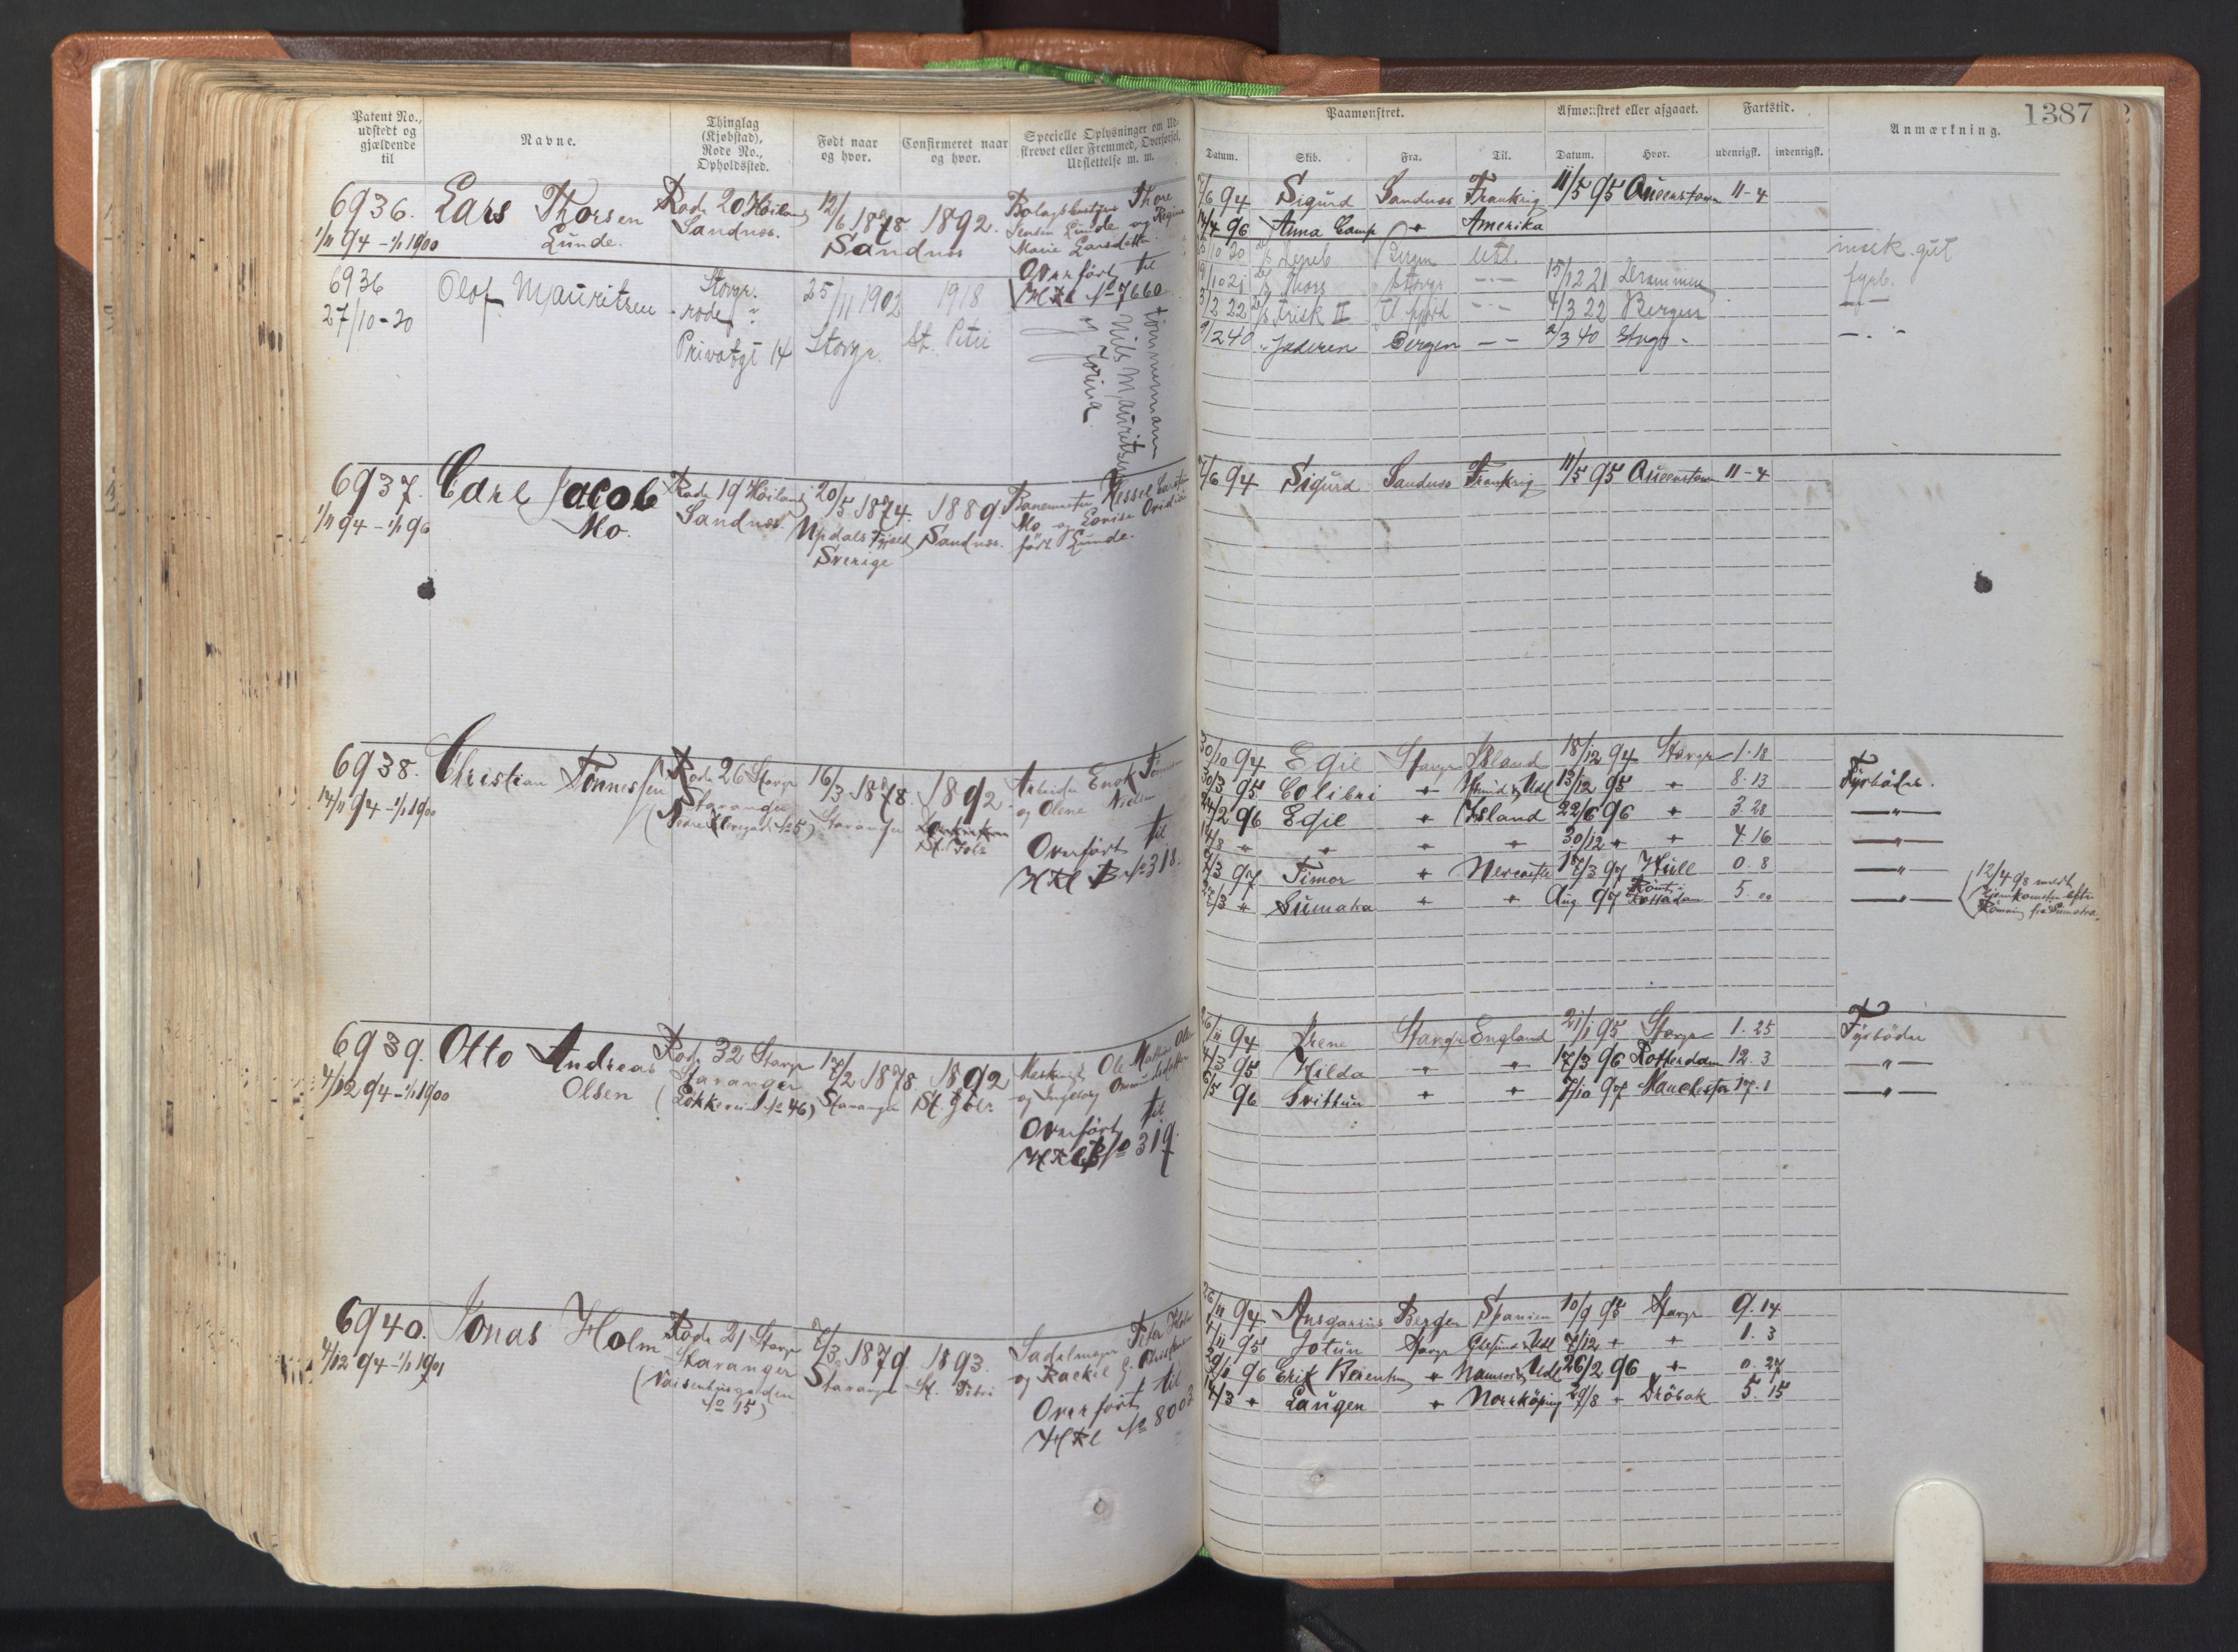 1387
Patent No., udstedt og gjældende til
Navne.
Thinglag (Kjøbstad), Rode No., Opholdssted.
Født naar og hvor.
Confirmeret naar og hvor.
Specielle Oplysninger om Udskrevet eller Fremmed, Overførsel, Udslettelse m. m.
Paamønstret.
Afmønstret eller afgaaet.
Fartstid.
Anmærkning.
Datum. Skib. Fra. Til. Datum. Hvor. udenrigsk. indenrigsk.
6936. Lars Thorsen Rode 20 Høiland 12/6 1878 1892.
1/11 94 - 1/1 1900 Lunde. Sandnes. Sandnes
Jensen Lunde og Regine
Marie Larsdatter
Overført til
HRL No 7660
7/6 94 Sigurd Sandnes Frankrig 11/5 95 Queenstown 11-4
14/4 96 Anna Camp " Amerika
6936 Olof Mauritsen Stavgr. 25/11 1902 1918
27/10-20 rode "
Privatgt 14 Stavgr. St. Petri
Tømmermann
Nils Mauritsen
/10 20 Bergen Utl.
/10 21 Thors Stavgr -"- 15/12 21 Drammen fyrb.
3/2 22 Frisk II 4/3 22 Bergen -"-
9/2 40 Jæderen Bergen -- 2/3 40 -"-
6937. Carl Jacob Rode 19 Høiland 20/5 1874. 1889.
1/11 94 - 1/1 96 Mo. Sandnes. Updals Fjeld Sandnes.
Sverige
Banemester Hessel
Mo og Lovise
født Lunde.
7/6 94 Sigurd Sandnes Frankrig 11/5 95 Queenstown 11-4
6938. Christian Tønnessen Rode 26 Stavgr 16/3 1878. 1892.
14/11 94 - 1/1 1900 Stavanger Stavanger
(Nedre No 5) St. Joh.
Arbeider Enok Tønnessen
og Olene Nielsen
Overført til
HRL B No 318.
30/10 94 Egil Stavgr Island 18/12 94 Stavgr 1.18
30/3 95 Colibri " Udl 13/12 95 " 8.13 Fyrbøder.
24/2 96 Egil " Island 22/6 96 " 3.28 —"—
14/8 " " " " 30/12 " " 4.16 —"—
7/3 97 Timor " Newcastle 17/3 97 Hull 0.8 —"—
27/3 " Sumatra " " Aug 97 Rømt i Rotterdam 5.00 —"—
12/4 98 meldt
hjemkomsten efter
Rømning fra Sumatra.
6939. Otto Andreas Rode 32 Stavgr 17/2 1878. 1892
4/12 94 - 1/1 1900 Olsen Stavanger Stavanger St. Joh.
(Løkkevei No 46)
Ole Mathias Olsen
og Ingeborg Ommundsdatter
Overført til
HRL B No 319.
26/11 94 Irene Stavgr England 21/1 95 Stavgr 1.25 Fyrbøder
4/3 95 Hilda " " 17/3 96 Rotterdam 12.3 —"—
6/5 96 Svithun " " 7/10 97 Manchester 17.1 —"—
6940. Jonas Holm Rode 21 Stavgr 7/3 1879. 1893.
4/12 94 - 1/1 1901 Stavanger Stavanger St. Petri
(Vaisenhusgaden
No 15)
Sadelmager Peter Holm
og Rackel
Overført til
HRL No 8003
26/11 94 Ansgarius Bergen Spanien 10/9 95 Stavgr 9.14
4/11 95 Jotun Stavgr Udl 7/12 " " 1.3
29/1 96 Erik Berentsen " Namsos Udl 26/2 96 " 0.27
14/3 " Laugen " Norrköping 29/8 " Drøbak 5.15